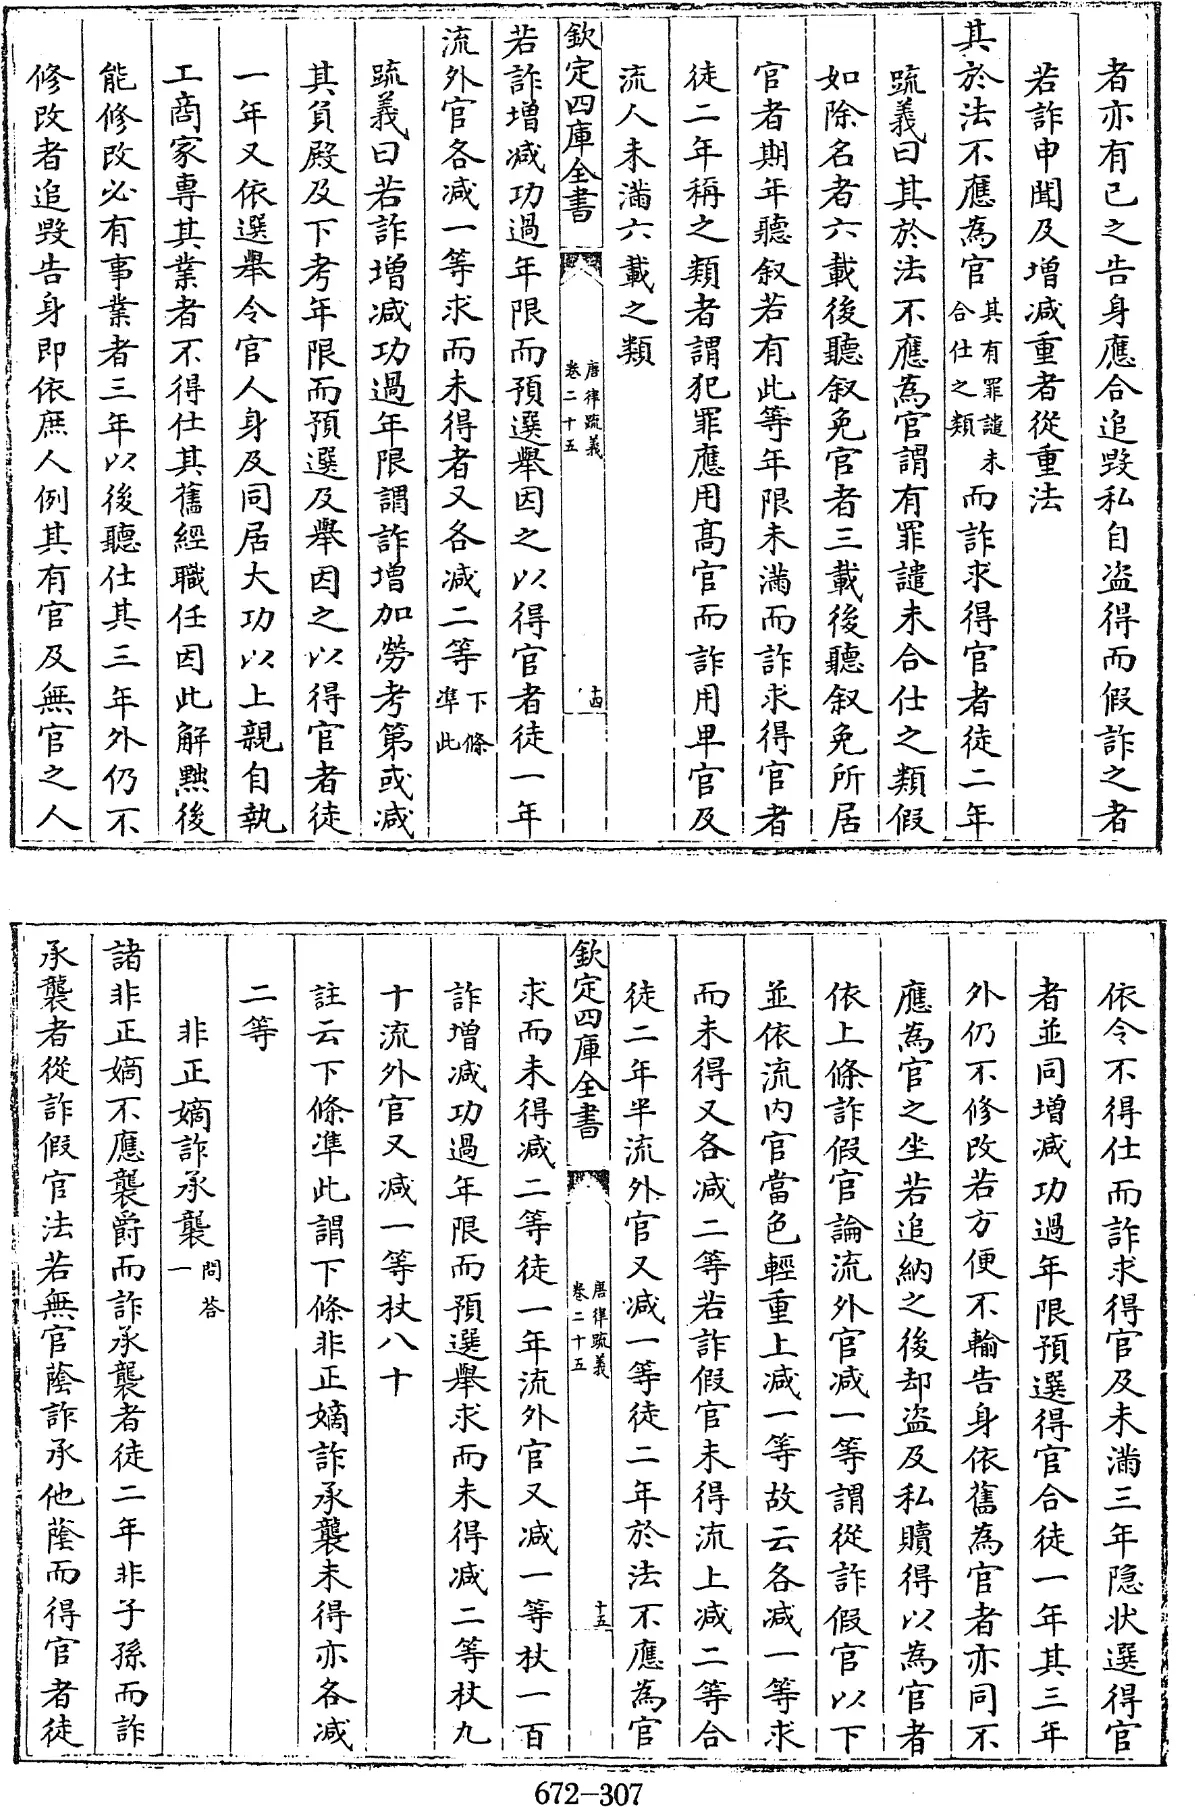 者亦有已之告身應合追毀私自盜得而假詐之者
若詐申聞及增減重者從重法
其於法不應為官其有罪譴未合仕之類而詐求得官者徒二年
疏義曰其於法不應為官謂有罪譴未合仕之類假
如除名者六載後聽叙免官者三載後聽叙免所居
官者期年聽叙若有此等年限未滿而詐求得官者
徒二年稱之類者謂犯罪應用高官而詐用卑官及
流人未滿六載之類
欽定四庫全書
唐律疏義
卷二十五
十四
若詐增減功過年限而預選舉因之以得官者徒一年
流外官各減一等求而未得者又各減二等下條準此
疏義曰若詐增減功過年限謂詐增加勞考第或減
其負殿及下考年限而預選及舉因之以得官者徒
一年又依選舉令官人身及同居大功以上親自執
工商家專其業者不得仕其舊經職任因此解黜後
能修改必有事業者三年以後聽仕其三年外仍不
修改者追毀告身即依庶人例其有官及無官之人
依令不得仕而詐求得官及未滿三年隐狀選得官
者並同增減功過年限預選得官合徒一年其三年
外仍不修改若方便不輸告身依舊為官者亦同不
應為官之坐若追納之後却盜及私贖得以為官者
依上條詐假官論流外官減一等謂從詐假官以下
並依流內官當色輕重上減一等故云各減一等求
而未得又各減二等若詐假官未得流上減二等合
徒二年半流外官又減一等徒二年於法不應為官
欽定四庫全書
唐律疏義
卷二十五
十五
求而未得減二等徒一年流外官又減一等杖一百
詐增減功過年限而預選舉求而未得減二等杖九
十流外官又減一等杖八十
註云下條準此謂下條非正嫡詐承襲未得亦各減
二等
非正嫡詐承襲問荅一
諸非正嫡不應襲爵而詐承襲者徒二年非子孫而詐
承襲者從詐假官法若無官蔭詐承他蔭而得官者徒
672-307